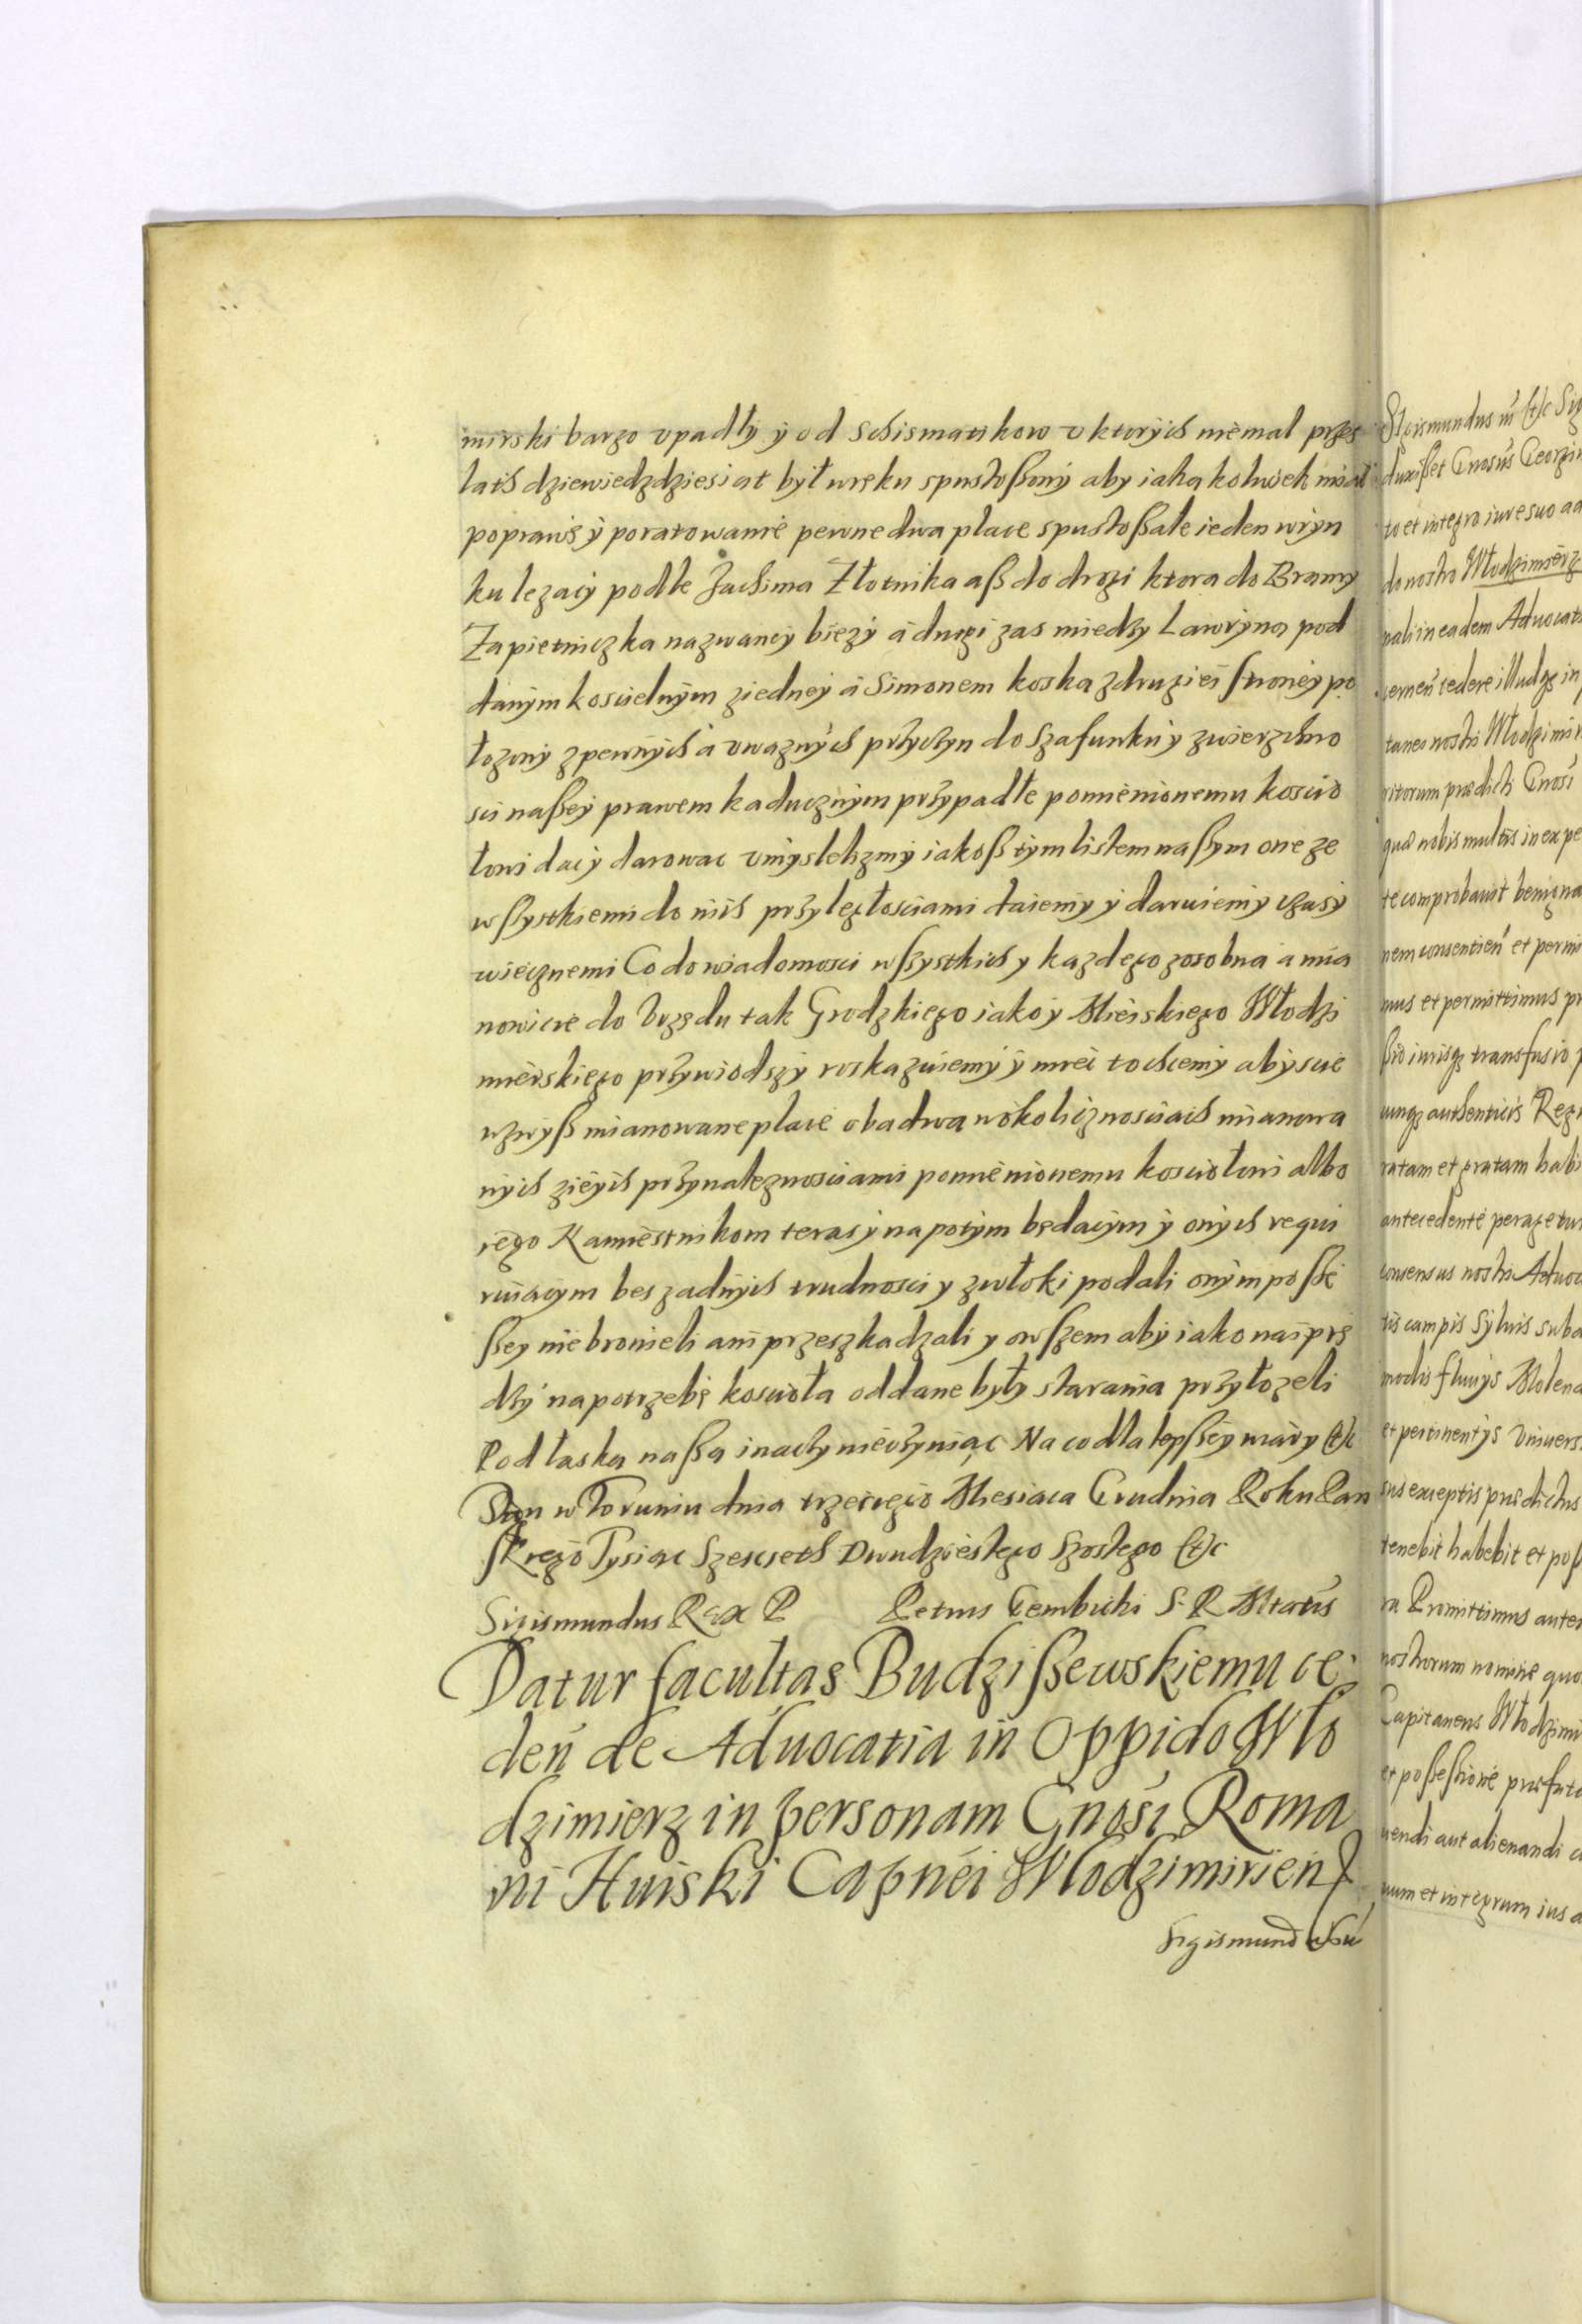 mirski barzo vpadły y od Schismatikow v ktorych niemal przes
lath dziewiedzdziesiat był wręku spustoßony aby iaka kolwiek miał
poprawę y poratowanie pewne dwa place spustoßałe ieden wryn
ku lezacy podle Jachima Złotnika aß do drogi ktora do Bramy
Zapietniczka nazwaney biezy a drugi zas miedzy Lawryną pod
danym koscielnym ziedney a Simonem koska zdrugiei strony po
łozony zpewnych a vwaznych przyczyn do Szafunku y zwierzchno
sci naßey prawem kaducznym przypadłe pomienionemu koscio
łowi dac y darowac vmyslelizmy iakoß tym listem naßym one ze
wßystkiemi do nich przyległosciami daiemy y daruiemy czasy
wiecznemi Co do wiadomosci wszystkich y kazdego zosobna a mia
nowicie do Vrzędu tak Grodzkiego iako y Mieiskiego Włodzi
mierskiego przywiodszy roskazuiemy y miec to chcemy aby sue
wzwyß mianowane place obadwa wokolicznosciach mianowa
nych zieych przynaleznosciami pomienionemu kosciołowi albo
iego Namiestnikom teras y napotym będacym y onych requi
ruiacym bes zadnych trudnosci y zwłoki podali onym poßeß
ßey nie bronieli ani przeszkadzali y owszem aby iako naiprę
dzy napotrzebę koscioła oddane były starania przyłozeli
Pod łaska naßa inaczy nieczyniąc Na co dla lepßey wiary (et)c
Dan w Toruniu dnia trzeciego Miesiaca Grudnia Roku Pan
skiego Tysiac Szescseth Dwudziestego Szostego (et)c
Sigismundus Rex P Petrus Gembicki S. R. Mtatis
Datur facultas Budzißewskiemu ce
den de Aduocatia in Oppido Wło
dzimierz in personam Gnosi Roma
ni Huiski Capnei Wlodzimirien
Sigismund
Sigismundus
duxißet Gnosus Georgi
to et integro iure suo
do nostro Włodzimierz
nali in eadem Aduocat
cernen cedere illudqz in
taneo nostri Włodzimir
ritorum prædicti Gnosi
quæ nobis multis in ex pe
te comprobauit benigna
nem consentien et permi
mus et permittimus
ßio iurisqz transfusio
cunqz authenticis Reg
ratam et gratam habi
antecedente peragetur
consensus nostri Aduoc
tis campis Syluis
modis fluuys Molend
et pertinentys Vniuers
sus exceptis prædictus
tenebit habebit et poß
ra Promittimus autem
nostrorum nomine quo
Capitaneus Włodzimi
et poßeßione præfato
uendi aut alienandi
uum et integrum ius a